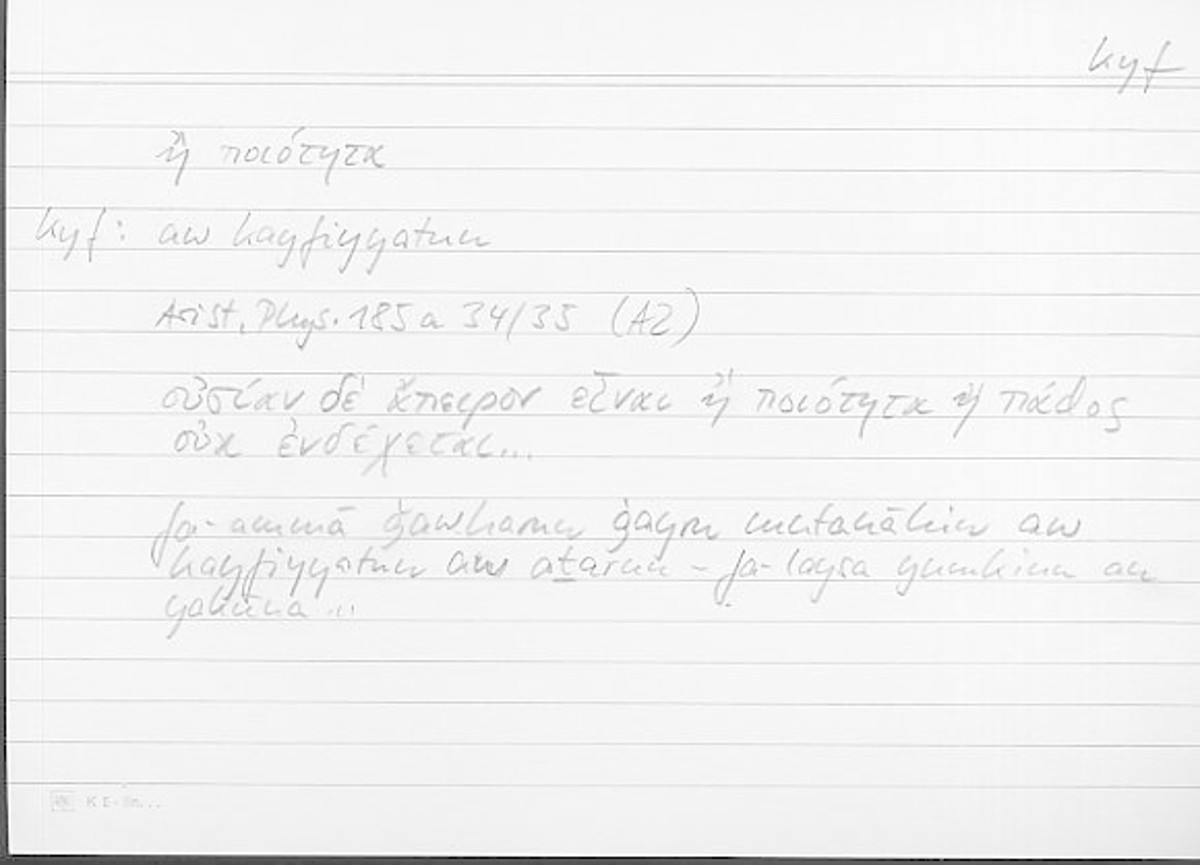 kyf
ἢ ποιότητα
kyf: aw kayfiyyatun
Arist., Phys. 185 a 34/35 (A2)
οὐσίαν δὲ ἄπειρον εἶναι ἢ ποιότητα ἢ πάθος
οὐκ ἐνδέχεται...
fa-ammā ǧawharun ġayru mutanāhin aw
kayfiyyatun aw aṯarun – fa-laysa yumkinu an
yakūna ...